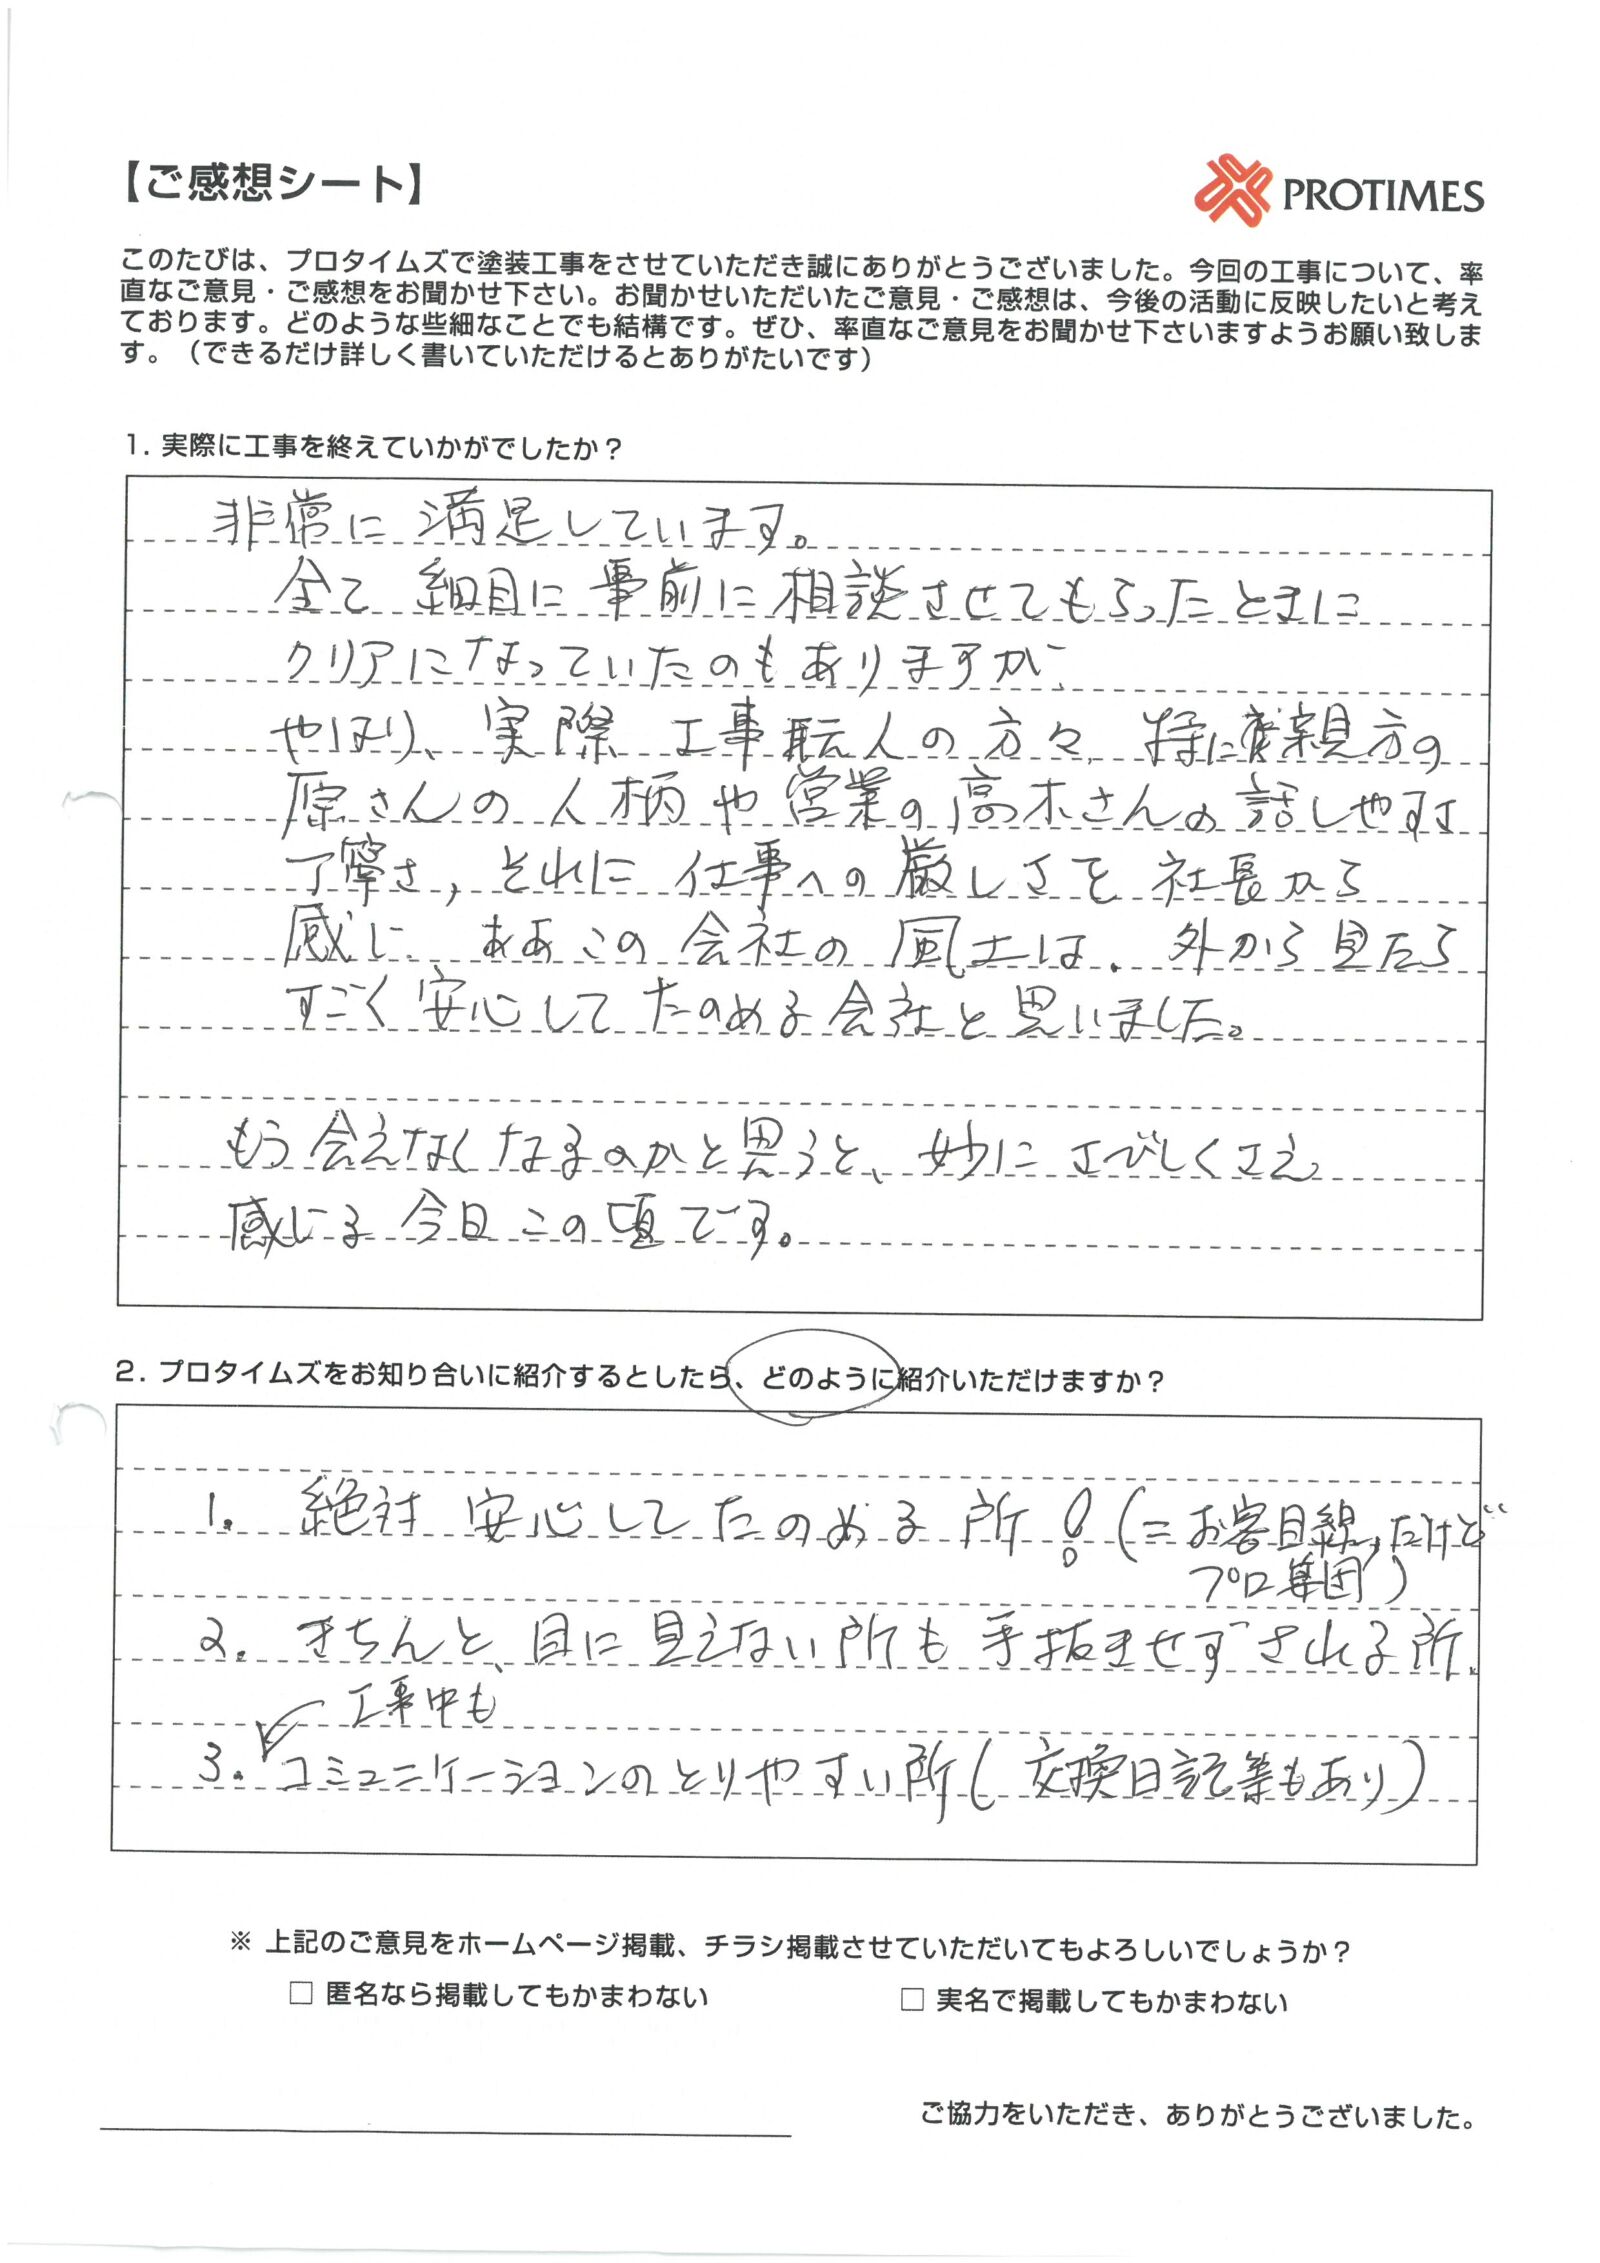 【ご感想シート】
PROTIMES
このたびは、プロタイムズで塗装工事をさせていただき誠にありがとうございました。今回の工事について、率
直なご意見・ご感想をお聞かせ下さい。お聞かせいただいたご意見・ご感想は、今後の活動に反映したいと考え
ております。どのような些細なことでも結構です。ぜひ、率直なご意見をお聞かせ下さいますようお願い致しま
す。（できるだけ詳しく書いていただけるとありがたいです）
1. 実際に工事を終えていかがでしたか？
非常に満足しています。
全て細目に事前に相談させてもらったときに
クリアになっていたのもありますが、
やはり、実際工事職人の方々、特に親方の
原さんの人柄や営業の高木さんの話しやすさ
丁寧さ，それに仕事への厳しさを社長から
感じ、ああこの会社の風土は、外から見たら
すごく安心してたのめる会社と思いました。
もう会えなくなるのかと思うと、妙にさびしくさえ
感じる今日この頃です。
2. プロタイムズをお知り合いに紹介するとしたら、どのように紹介いただけますか？
1. 絶対安心してたのめる所！(=お客目線,だけど
プロ集団)
2. きちんと、目に見えない所も手抜きせずされる所.
工事中も
3. コミュニケーションのとりやすい所(交換日記等もあり)
※ 上記のご意見をホームページ掲載、チラシ掲載させていただいてもよろしいでしょうか？
□ 匿名なら掲載してもかまわない □ 実名で掲載してもかまわない
ご協力をいただき、ありがとうございました。